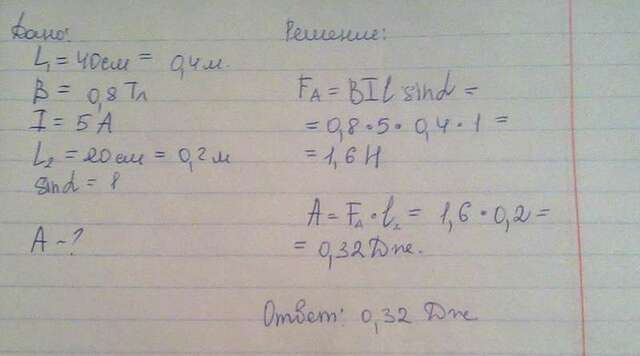 Дано:
L₁ = 40см = 0,4м.
B = 0,8 Тл
I = 5 А
L₂ = 20см = 0,2 м
sinα = 1
A – ?
Решение:
Fᴀ = BIl sinα =
= 0,8 • 5 • 0,4 • 1 =
= 1,6 Н
A = Fᴀ • l₂ = 1,6 • 0,2 =
= 0,32 Дж.
Ответ: 0,32 Дж.